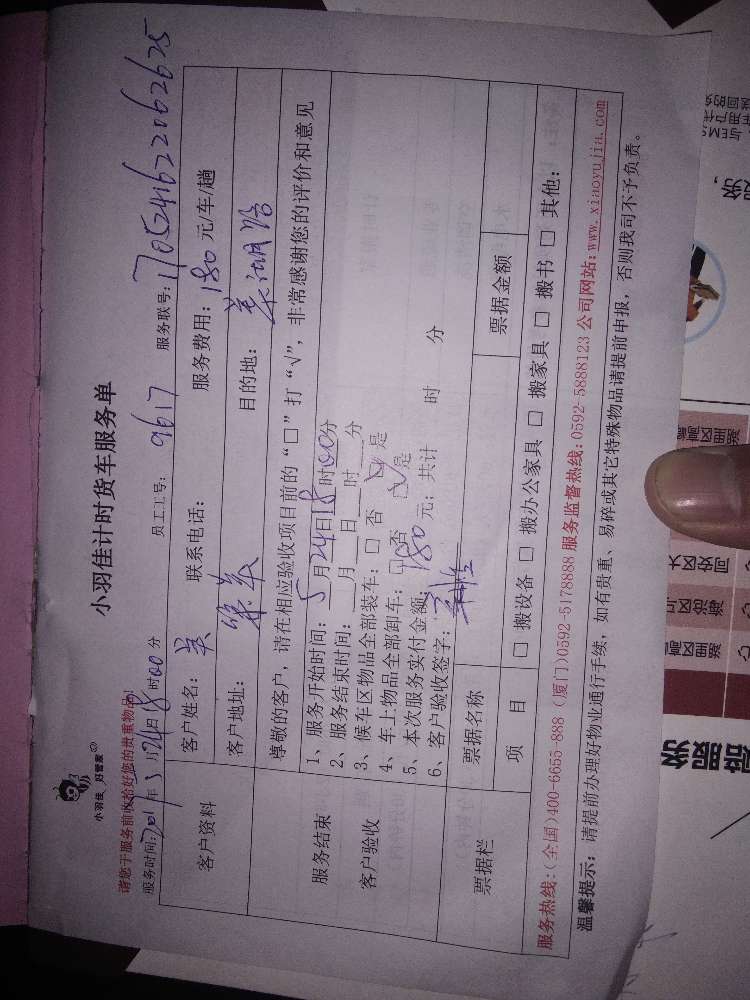 小羽佳 好管家
小羽佳计时货车服务单
请您于服务前收拾好您的贵重物品!
服务时间: 年5月24日18时00分 员工工号: 9617 服务联号: 1705241622062625
客户资料
客户姓名: 吴 联系电话: 服务费用: 180 元/车/趟
客户地址: 目的地:
服务结束
客户验收
尊敬的客户, 请在相应验收项目前的“□”打“√”, 非常感谢您的评价和意见
1、服务开始时间: 5月24日18时00分
2、服务结束时间: 月 日 时 分
3、候车区物品全部装车: □ 否 ☑ 是
4、车上物品全部卸车: □ 否 ☑ 是
5、本次服务实付金额: 180 元; 共计 时 分
6、客户验收签字:
票据栏
票据名称 票据金额
项 目 □ 搬设备 □ 搬办公家具 □ 搬家具 □ 搬书 □ 其他:
服务热线:(全国)400-6655-888 (厦门)0592-5178888 服务监督热线:0592-5888123 公司网站:www.xiaoyujia.com
温馨提示: 请提前办理好物业通行手续, 如有贵重、易碎或其它特殊物品请提前申报, 否则我司不予负责。